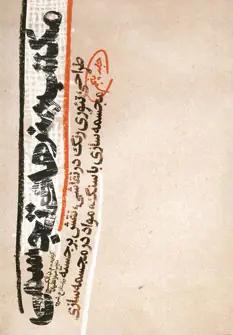 مکتب هنرهای تجسمی
طراحی، تئوری رنگ در نقاشی، نقش برجسته
مجسمه سازی با سنگ، مواد در مجسمه سازی